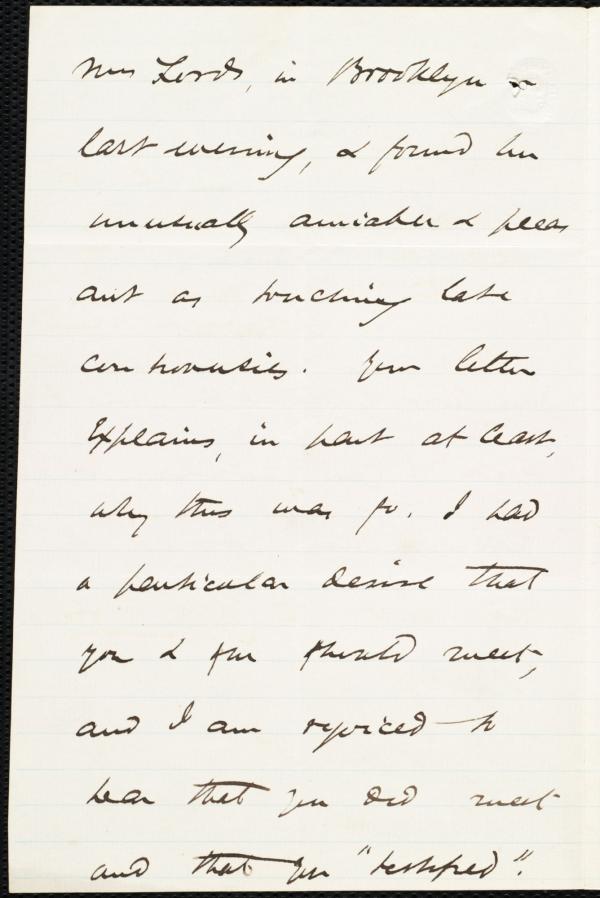 Mrs Lords, in Brooklyn
last evening, & found her
unusually amiable & pleas
ant as touching late
controversies. Your letter
Explains, in part at least,
why this was so. I had
a particular desire that
you & she should meet,
and I am rejoiced to
hear that you did meet
and that you "testified".